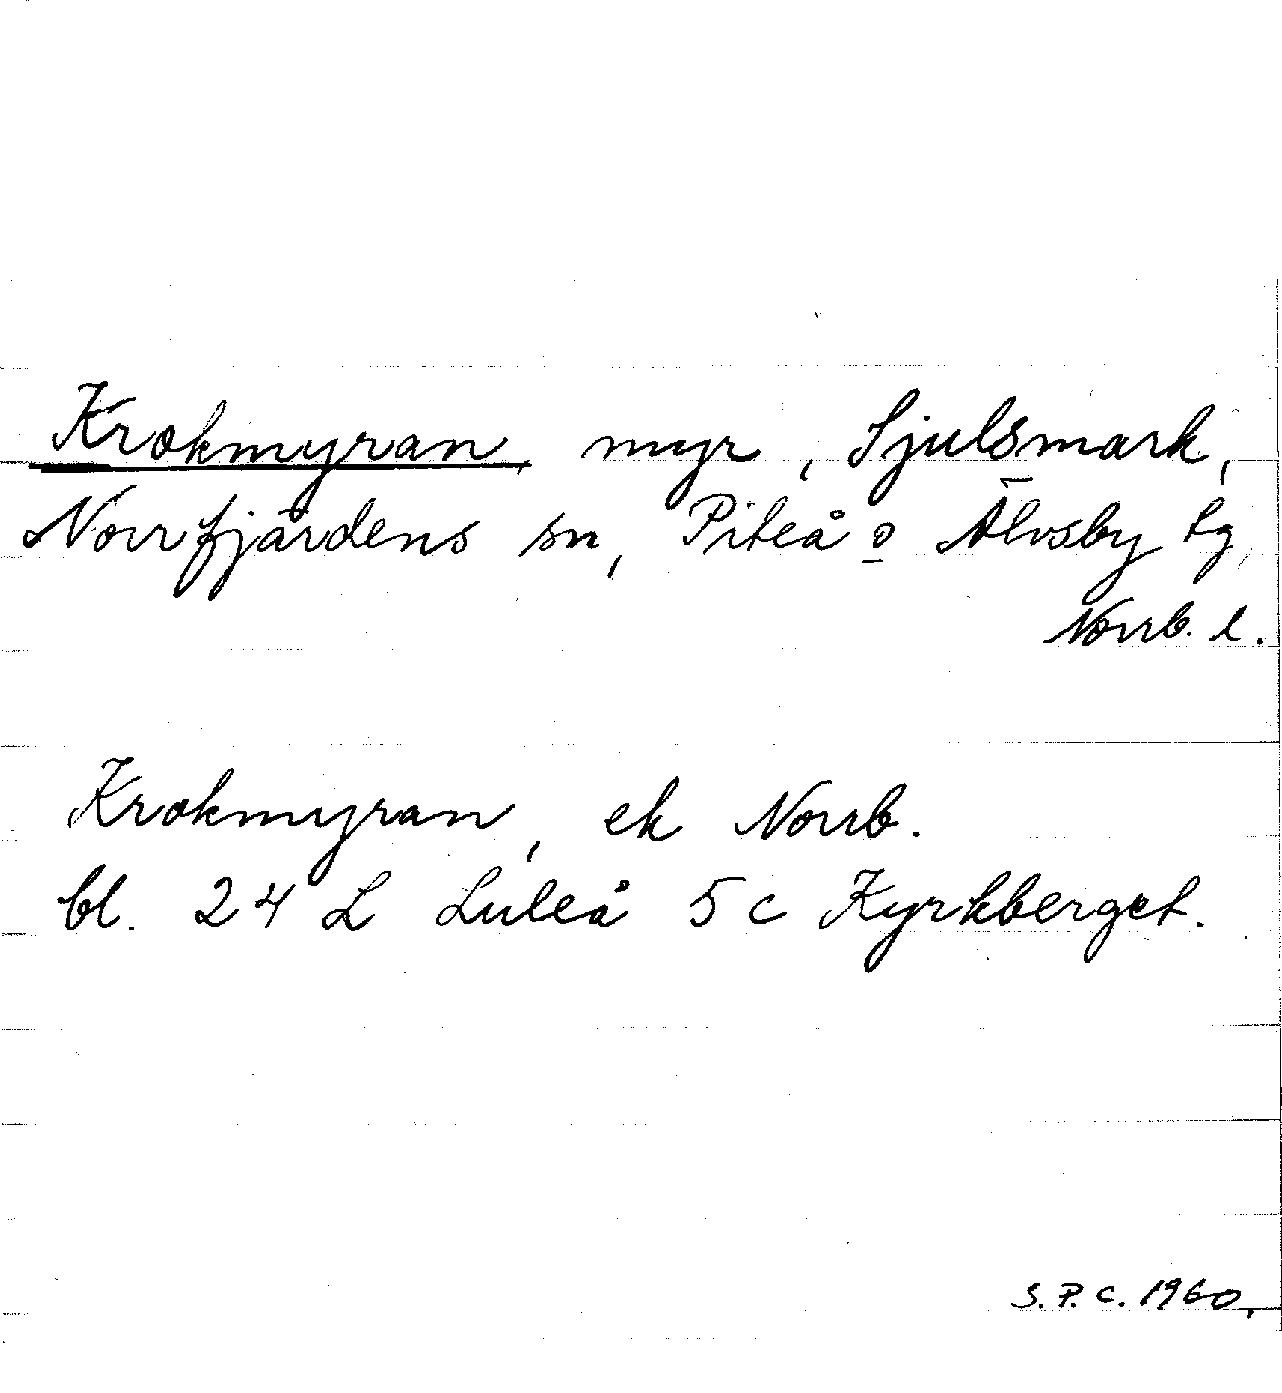 Krokmyran, myr, Sjulsmark,
Norrfjärdens sn, Piteå o Älvsby tg,
Norrb. l.
Krokmyran, ek Norrb.
bl. 24 L Luleå 5 c Kyrkberget.
S. P. C. 1960.